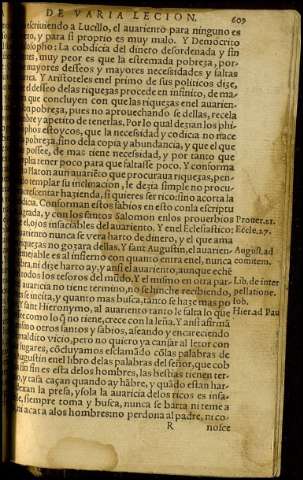 DE VARIA LECION. 609
scriuiendo a Lucillo, el auariento para ninguno es
y para si proprio es muy malo. Y Democrito
La cobdicia del dinero desordenada y sin
muy peor es que la estremada pobreza, por-
mayores desseos y mayores necessidades y faltas
Y Aristoteles enel primo de sus politicos dize,
desseo delas riquezas procede en infinito, de ma-
que concluyen con que las riquezas enel auarien-
pobreza, pues no aprouechando se dellas, recela
y apetito de tenerlas. Por lo qual dezian los phi-
phos estoycos, que la necessidad y codicia no nace
pobreza, sino dela copia y abundancia, y que el que
possee, de mas tiene necessidad, y por tanto que
tener poco para que faltasse poco. Y conforma
Platon aun auariẽto que procuraua riquezas, pen-
templar su inclinacion, le dezia simple no procu-
acrescentar hazienda, si quieres ser rico, sino acorta la
dicia. Conforman estos sabios en esto con la escriptu
grada, y con los sanctos. Salomon enlos prouerbios Prouer.21.
ojos insaciables del auariento. Y enel Eclesiastico: Eccle.27.
auariento nunca se vera harto de dinero, y el que ama
riquezas no gozara dellas. Y sant Augustin, el auarien- August.ad
es al infierno con quanto entra enel, nunca comitem.
ni dize harto ay, y ansi el auariento, aunque eche
todos los tesoros del mũdo. Y el mismo en otra par- Lib.de inter
auaricia no tiene termino, no se hinche recibiendo, pellatione.
se incita, y quanto mas busca, tanto se haze mas po lob.
sant Hieronymo, al auariento tanto le falta lo que Hier.ad Pau
como lo q̃ no tiene, crece con la leña. Y ansi afirmã
otros santos y sabios, afeando y encareciendo
maldito vicio, pero no quiero ya cansar al letor con
lugares, cõcluyamos esclamãdo cõlas palabras de
Augustin enel libro delas palabras del señor, que cob
sin fin es esta delos hombres, las bestias tienen ter-
caçan quando ay hãbre, y quãdo estan har-
dexan la presa, y sola la auaricia delos ricos es insa-
siempre roma y busca, nunca se harta ni teme a
acata alos hombres ni perdona al padre, ni co-
R noſce